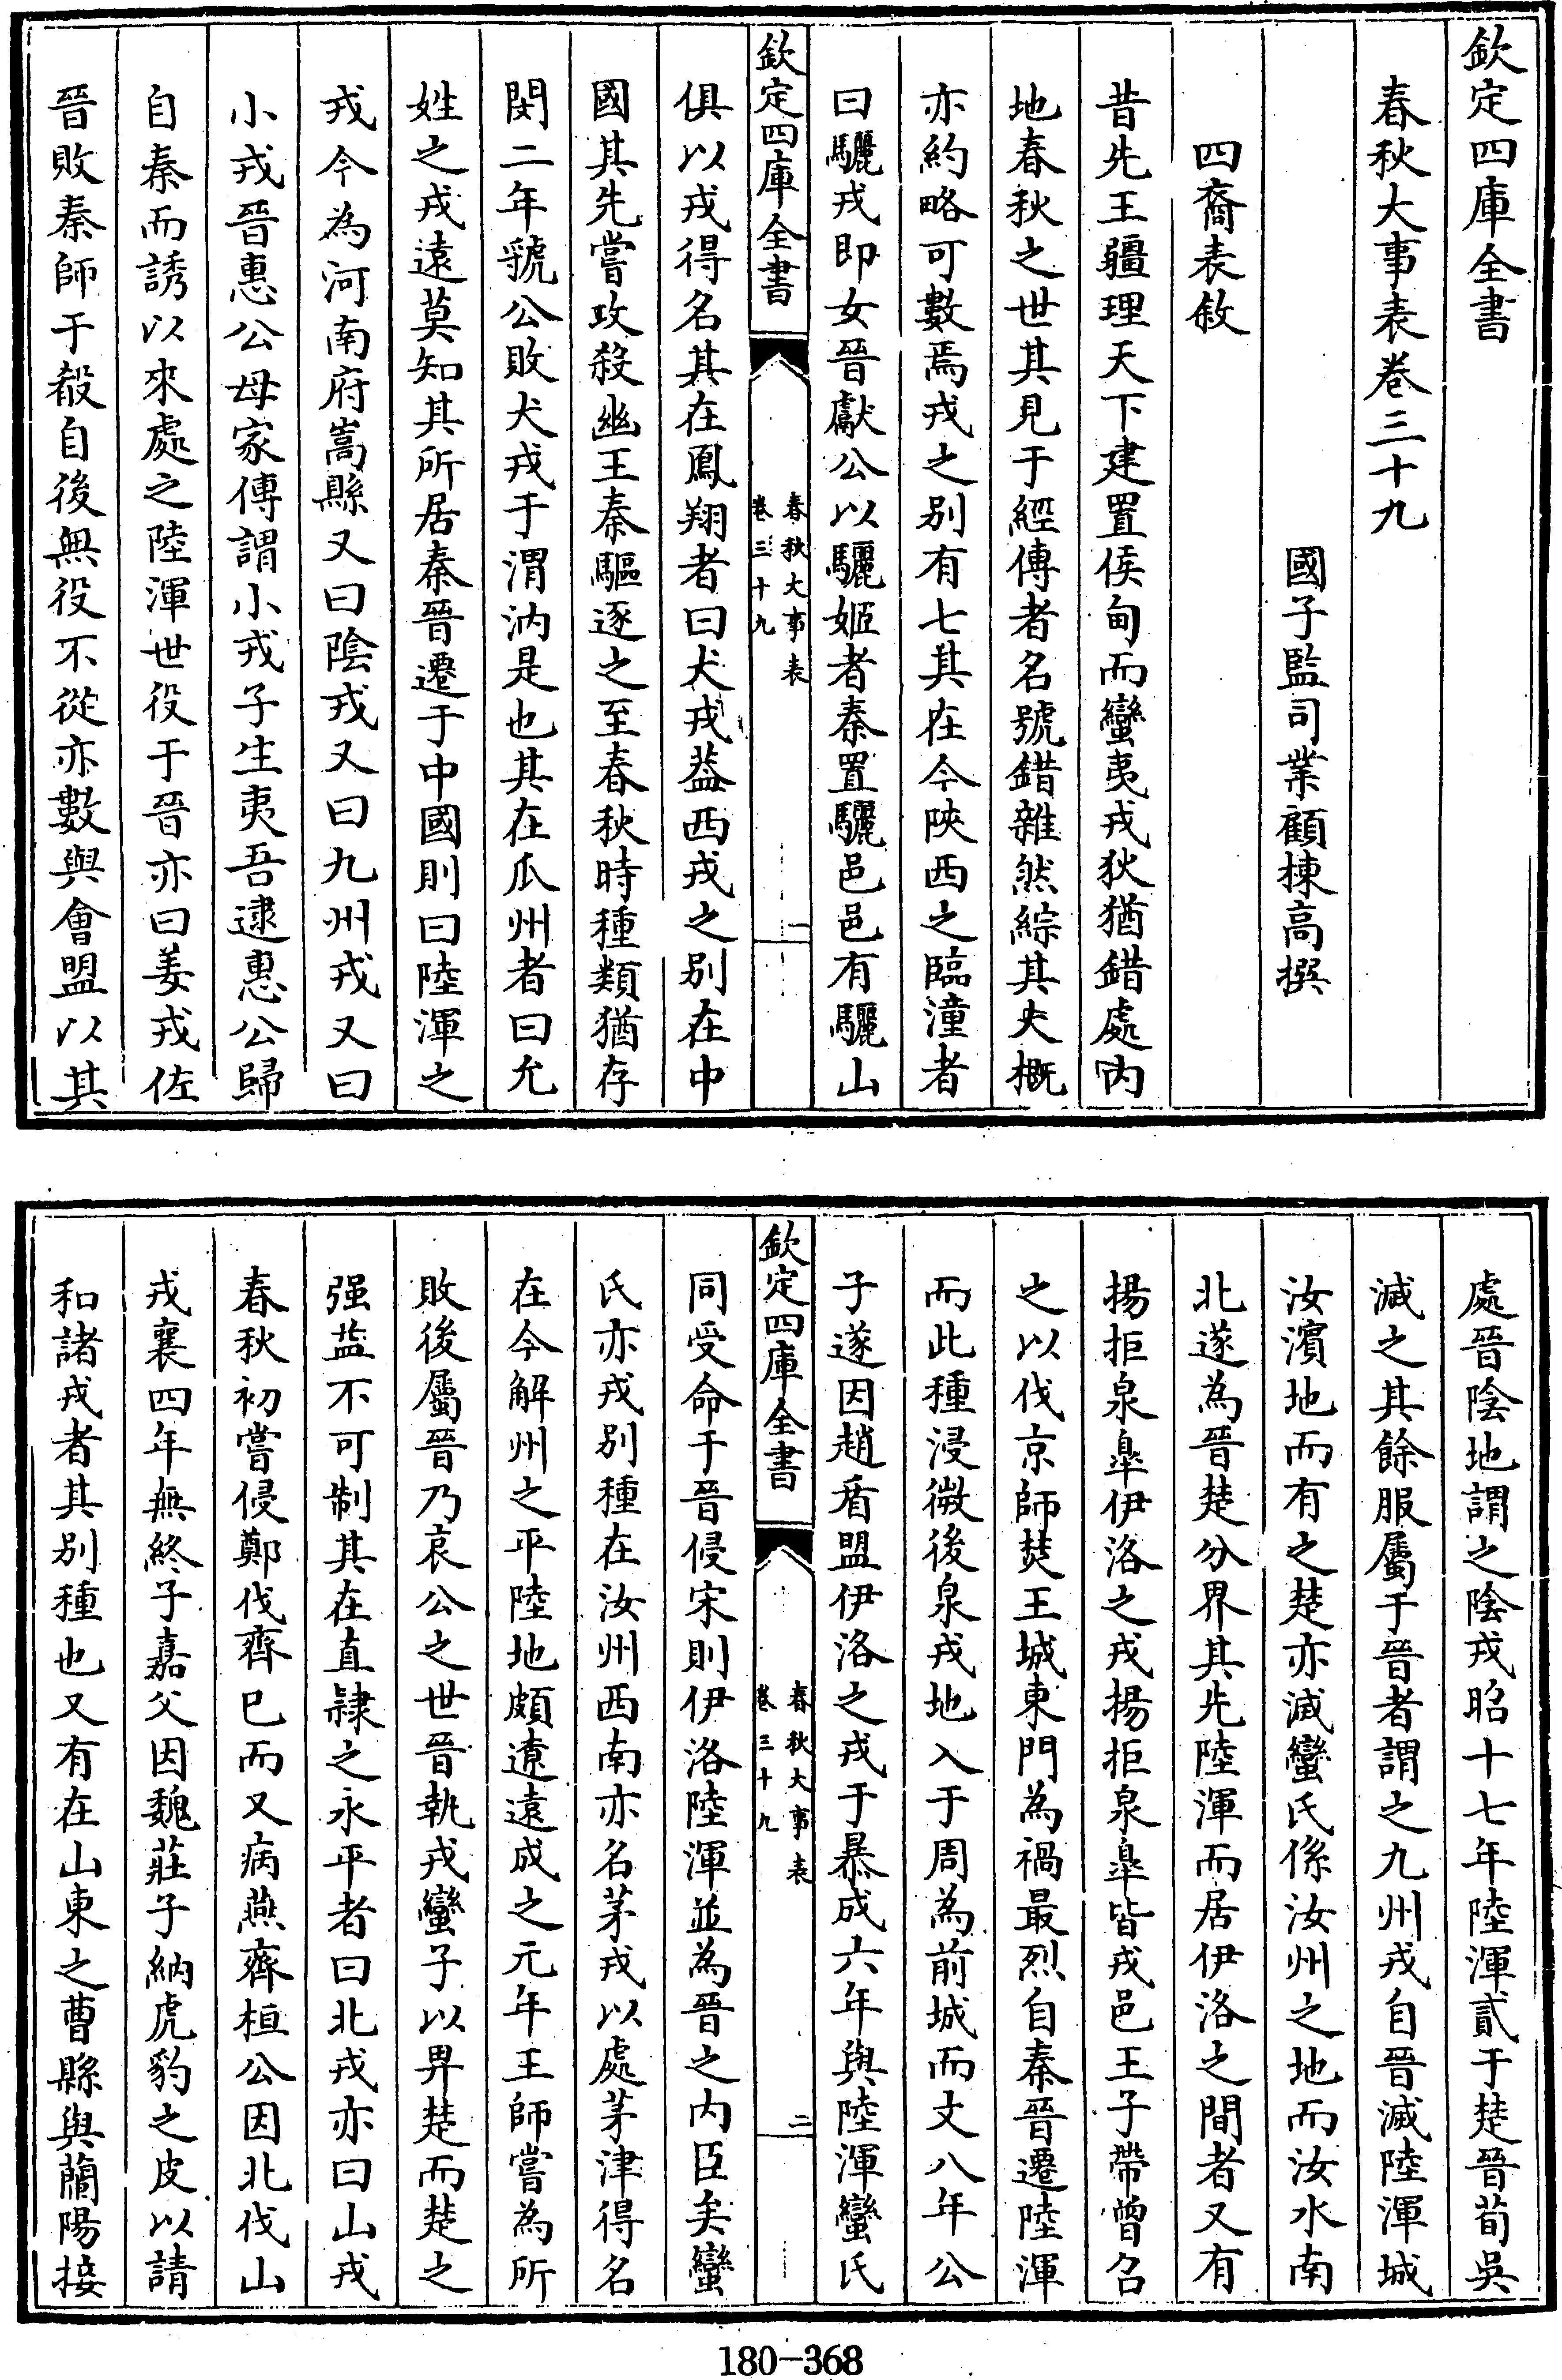 欽定四庫全書
春秋大事表卷三十九
國子監司業顧棟高撰
四裔表敘
昔先王疆理天下建置侯甸而蠻夷戎狄猶錯處內
地春秋之世其見于經傳者名號錯雜然綜其大概
亦約略可數焉戎之別有七其在今陜西之臨潼者
曰驪戎即女晉獻公以驪姬者秦置驪邑邑有驪山
欽定四庫全書
春秋大事表
卷三十九
一
俱以戎得名其在鳳翔者曰犬戎葢西戎之別在中
國其先嘗攻殺幽王秦驅逐之至春秋時種類猶存
閔二年虢公敗犬戎于渭汭是也其在瓜州者曰允
姓之戎遠莫知其所居秦晉遷于中國則曰陸渾之
戎今為河南府嵩縣又曰陰戎又曰九州戎又曰
小戎晉惠公母家傳謂小戎子生夷吾逮惠公歸
自秦而誘以來處之陸渾世役于晉亦曰姜戎佐
晉敗秦師于殽自後無役不從亦數與會盟以其
處晉陰地謂之陰戎昭十七年陸渾貳于楚晉荀吳
滅之其餘服屬于晉者謂之九州戎自晉滅陸渾城
汝濱地而有之楚亦滅蠻氏係汝州之地而汝水南
北遂為晉楚分界其先陸渾而居伊洛之間者又有
揚拒泉臯伊洛之戎揚拒泉臯皆戎邑王子帶曾召
之以伐京師焚王城東門為禍最烈自秦晉遷陸渾
而此種浸微後泉戎地入于周為前城而文八年公
子遂因趙盾盟伊洛之戎于暴成六年與陸渾蠻氏
欽定四庫全書
春秋大事表
卷三十九
二
同受命于晉侵宋則伊洛陸渾並為晉之內臣矣蠻
氏亦戎別種在汝州西南亦名茅戎以處茅津得名
在今解州之平陸地頗遼遠成之元年王師嘗為所
敗後屬晉乃哀公之世晉執戎蠻子以畀楚而楚之
强葢不可制其在直隸之永平者曰北戎亦曰山戎
春秋初嘗侵鄭伐齊已而又病燕齊桓公因北伐山
戎襄四年無終子嘉父因魏莊子納虎豹之皮以請
和諸戎者其別種也又有在山東之曹縣與蘭陽接
180-368